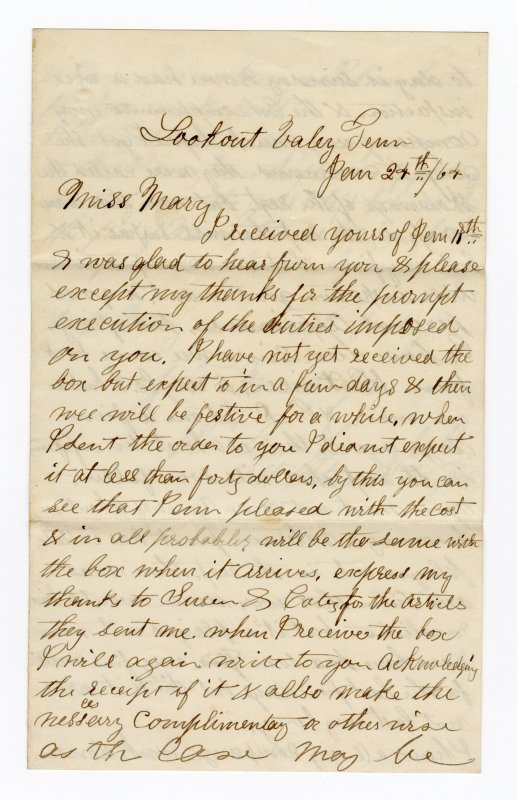 Lookout Valey Tenn
Jan 24th/64
Miss Mary
I received yours of Jan 18th
& was glad to hear from you & please
except my thanks for the prompt
execution of the duties imposed
on you. I have not yet received the
box but expect to in a fiew days & then
wee will be festive for a while, when
I sent the order to you I did not expect
it at less than forty dollers, by this you can
see that I am pleased with the cost
& in all probabley will be the same with
the box when it arrives, express my
thanks to Susan & Caty for the articles
they sent me. when I receive the box
I will again write to you acknowledging
the receipt of it & allso make the
nescessary complimentay or otherwise
as th case may be